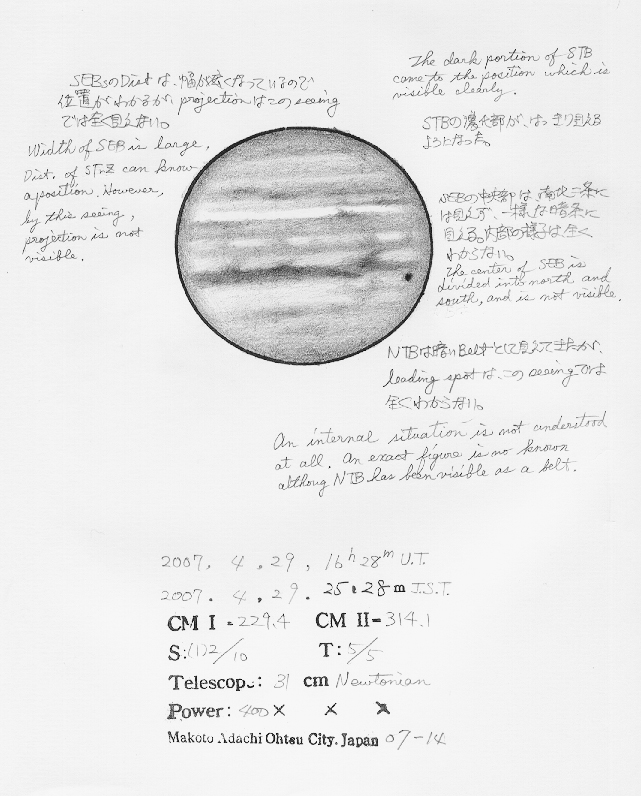 SEBsのDistは、幅が広くなっているので
位置がわかるが、projectionはこのseeing
では全く見えない。
Width of SEB is large,
Dist. of STrZ can know
a position. However,
by this seeing,
projection is not
visible.
The dark portion of STB
come to the position which is
visible clearly.
STBの濃化部が、はっきり見える
ようになった。
SEBの中央部は、南北二条に
は見えず、一様な暗条に
見える。内部の様子は全く
わからない。
The center of SEB is
divided into north and
south, and is not visible.
NTBは暗いBeltとして見えてきたが、
leading spotは、このseeingでは
全くわからない。
An internal situation is not understood
at all. An exact figure is no known
althoug NTB has been visible as a belt.
2007. 4. 29, 16h 28m U.T.
2007. 4. 29. 25h 28m J.S.T.
CM I - 229.4 CM II- 314.1
S:(1)2/10 T: 5/5
Telescope: 31 cm Newtonian
Power: 400× × ×
Makoto Adachi Ohtsu City. Japan 07-14